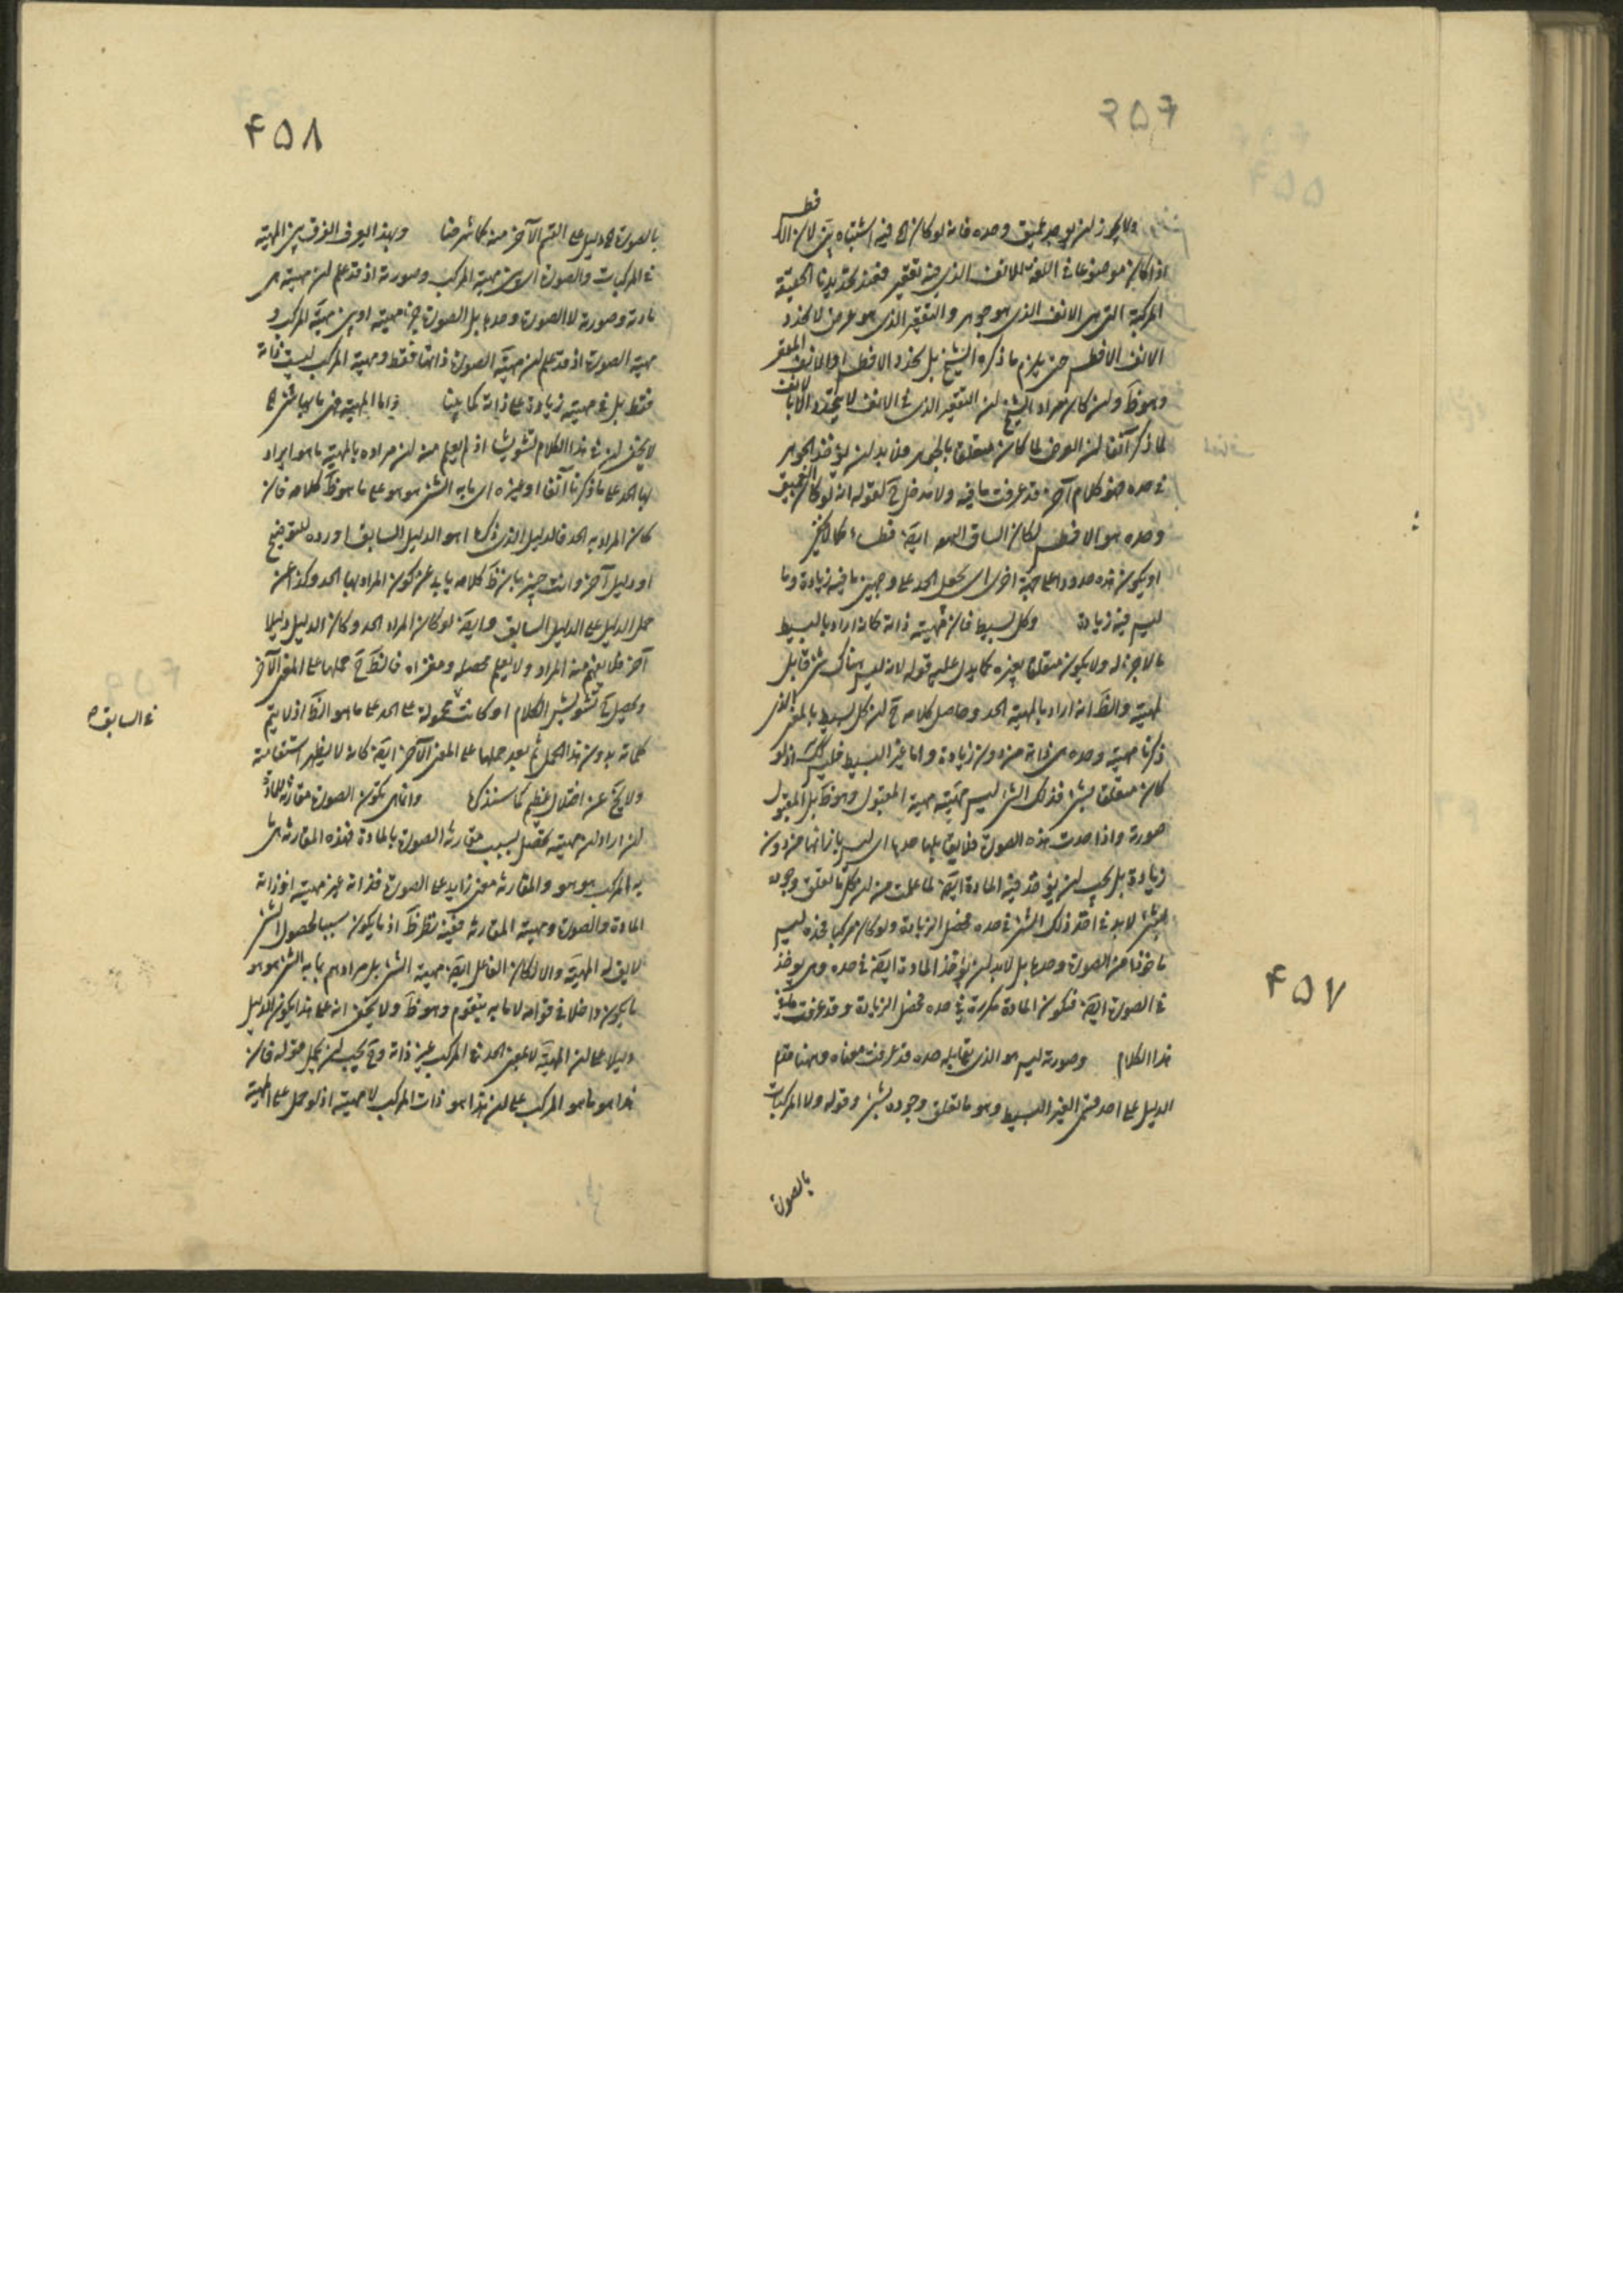 ۴۵۷
ولا يجوز ان يوجد عميق وحده فانه لو كان اه فيه اشتباه بين لان الافطس
اذا كان موضوعا في اللغة للانف الذي فيه تقعير فعند تحديدنا الحقيقة
المركبة التي هي الانف الذي هو جوهر والتقعير الذي هو عرض لا نحدد
الانف الافطس حتى يلزم ما ذكره الشيخ بل نحدد الافطس او الانف المقعر
وهو ظَ وان كان مراد الشيخ ان التقعير الذي في الانف لا يحدد الا بالانف
لما ذكر آنفا ان العرض لما كان متعلقا بالجوهر فلا بد ان يؤخذ الجوهر
في حده فهو كلام آخر قد عرفت ما فيه ولا مدخل حَ لقوله انه لو كان العميق
وحده هو الافطس لكان الساق ايضَ فطساء كما لا يخفى
او يكون هذه حدودا على جهة اخرى اى يجعل الحد على وجهين ما فيه زيادة وما
ليس فيه زيادة وكل بسيط فان مهيته ذاته كانه اراد بالبسيط
ما لا جزء له ولا يكون متعلقا بغيره كما يدل عليه قوله لانه ليس هناك شئ قابل
لمهيته والظَ انه اراد بالمهية الحد وحاصل كلامه حَ ان كل بسيط بالمعنى الذي
ذكرنا مهيته وحده هى ذاته من دون زيادة واما غير البسيط فليس كك اذ لو
كان متعلقا بشئ فذلك الشئ ليس مهيته مهية المقبول وهو ظَ بل المقبول
صورته واذا حدت هذه الصورة فلا يقابلها حدها اى ليس بازائها من دون
زيادة بل يجب ان يؤخذ فيه المادة ايضَ لما علمت من ان كل ما تعلق وجوده
بشئ لا بد في اخذ ذلك الشئ في حده فحصل الزيادة ولو كان مركبا فحده ليس
ماخوذا من الصورة وحدها بل لا بد ان يؤخذ المادة ايضَ في حده وهى يوخذ
في الصورة ايضَ فتكون المادة مكررة في حده فحصل الزيادة وقد عرفت ما في
هذا الكلام وصورته ليس هو الذي يقابله حده قد عرفت معناه وههنا مقم
الدليل على احد قسمى الغير البسيط وهو ما تعلق وجوده بشئ وقوله ولا المركبات
بالصورة
۴۵۷
۴۵۸
بالصورة اه دليل على القسم الآخر منه كما شرحنا وبهذا يعرف الفرق بين المهية
في المركبات والصورة اى بين مهية المركب وصورته اذ قد علم ان مهيته هى
مادته وصورته لا الصورة وحدها بل الصورة جزء مهيته او بين مهية المركب و
مهية الصورة اذ قد علم ان مهية الصورة ذاتها فقط ومهية المركب ليست ذاته
فقط بل في مهيته زيادة على ذاته كما بينا واما المهية فهى ما بها شئ اه
لا يخفى ان في هذا الكلام تشويشا اذ لم يعلم منه ان مراده بالمهية ما هو ايراد
بها الحد على ما ذكرنا آنفا او غيره اى ما به الشئ هو هو على ما هو ظَ كلامه فان
كان المراد به الحد فالدليل الذي ذكره اهو الدليل السابق اورده للتوضيح
او دليل آخر وانت خبير بان ظَ كلامه يابى عن كون المراد بها الحد وكذا عن
حمل الدليل على الدليل السابق وايضَ لو كان المراد الحد وكان الدليل دليلا
آخر فلا يفهم منه المراد ولا يعلم محصله ومغزاه فالظَ حَ حملها على المعنى الآخر
ويحصل حَ تشويش الكلام اذ كانت محمولة على الحد على ما هو الظَ اذ لا يتم
كلماته بدون هذا الحمل ثم بعد حملها على المعنى الآخر ايضَ كانه لا يظهر استقامته
ولا يخَ عن اختلال عظيم كما سنذكره وانما هى بكون الصورة مقارنة للمادة
ان اراد ان مهيته تحصل بسبب مقارنة الصورة بالمادة فهذه المقارنة هى ما
به المركب هو هو والمقارنة معنى زايد على الصورة فذاته غير مهيته اذ ذاته
المادة والصورة ومهيته المقارنة ففيه نظر ظَ اذ ما يكون سببا لحصول الشئ
لا يق له المهية والا لكان الفاعل ايضَ مهية الشئ بل مرادهم بما به الشئ هو هو
ما يكون داخلا في قوامه لا ما به يتقوم وهو ظَ ولا يخفى انه على هذا يكون الدليل
دليلا على ان المهية لا بمعنى الحد في المركب غير ذاته وحَ يجب ان يحمل قوله فان
هذا هو ما هو المركب على ان هذا هو ذات المركب لا مهيته اذ لو حمل على المهية
في السابق ه